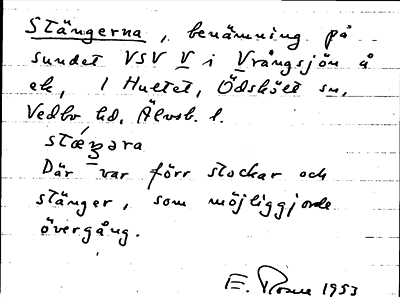 Stängerna, benämning på
sundet VSV V i Vrångsjön å
ek, 1 Hultet, Ödskölt sn,
Vedbo hd, Älvsb. l.
Där var förr stockar och
stänger, som möjliggjorde
övergång.
E. 1953